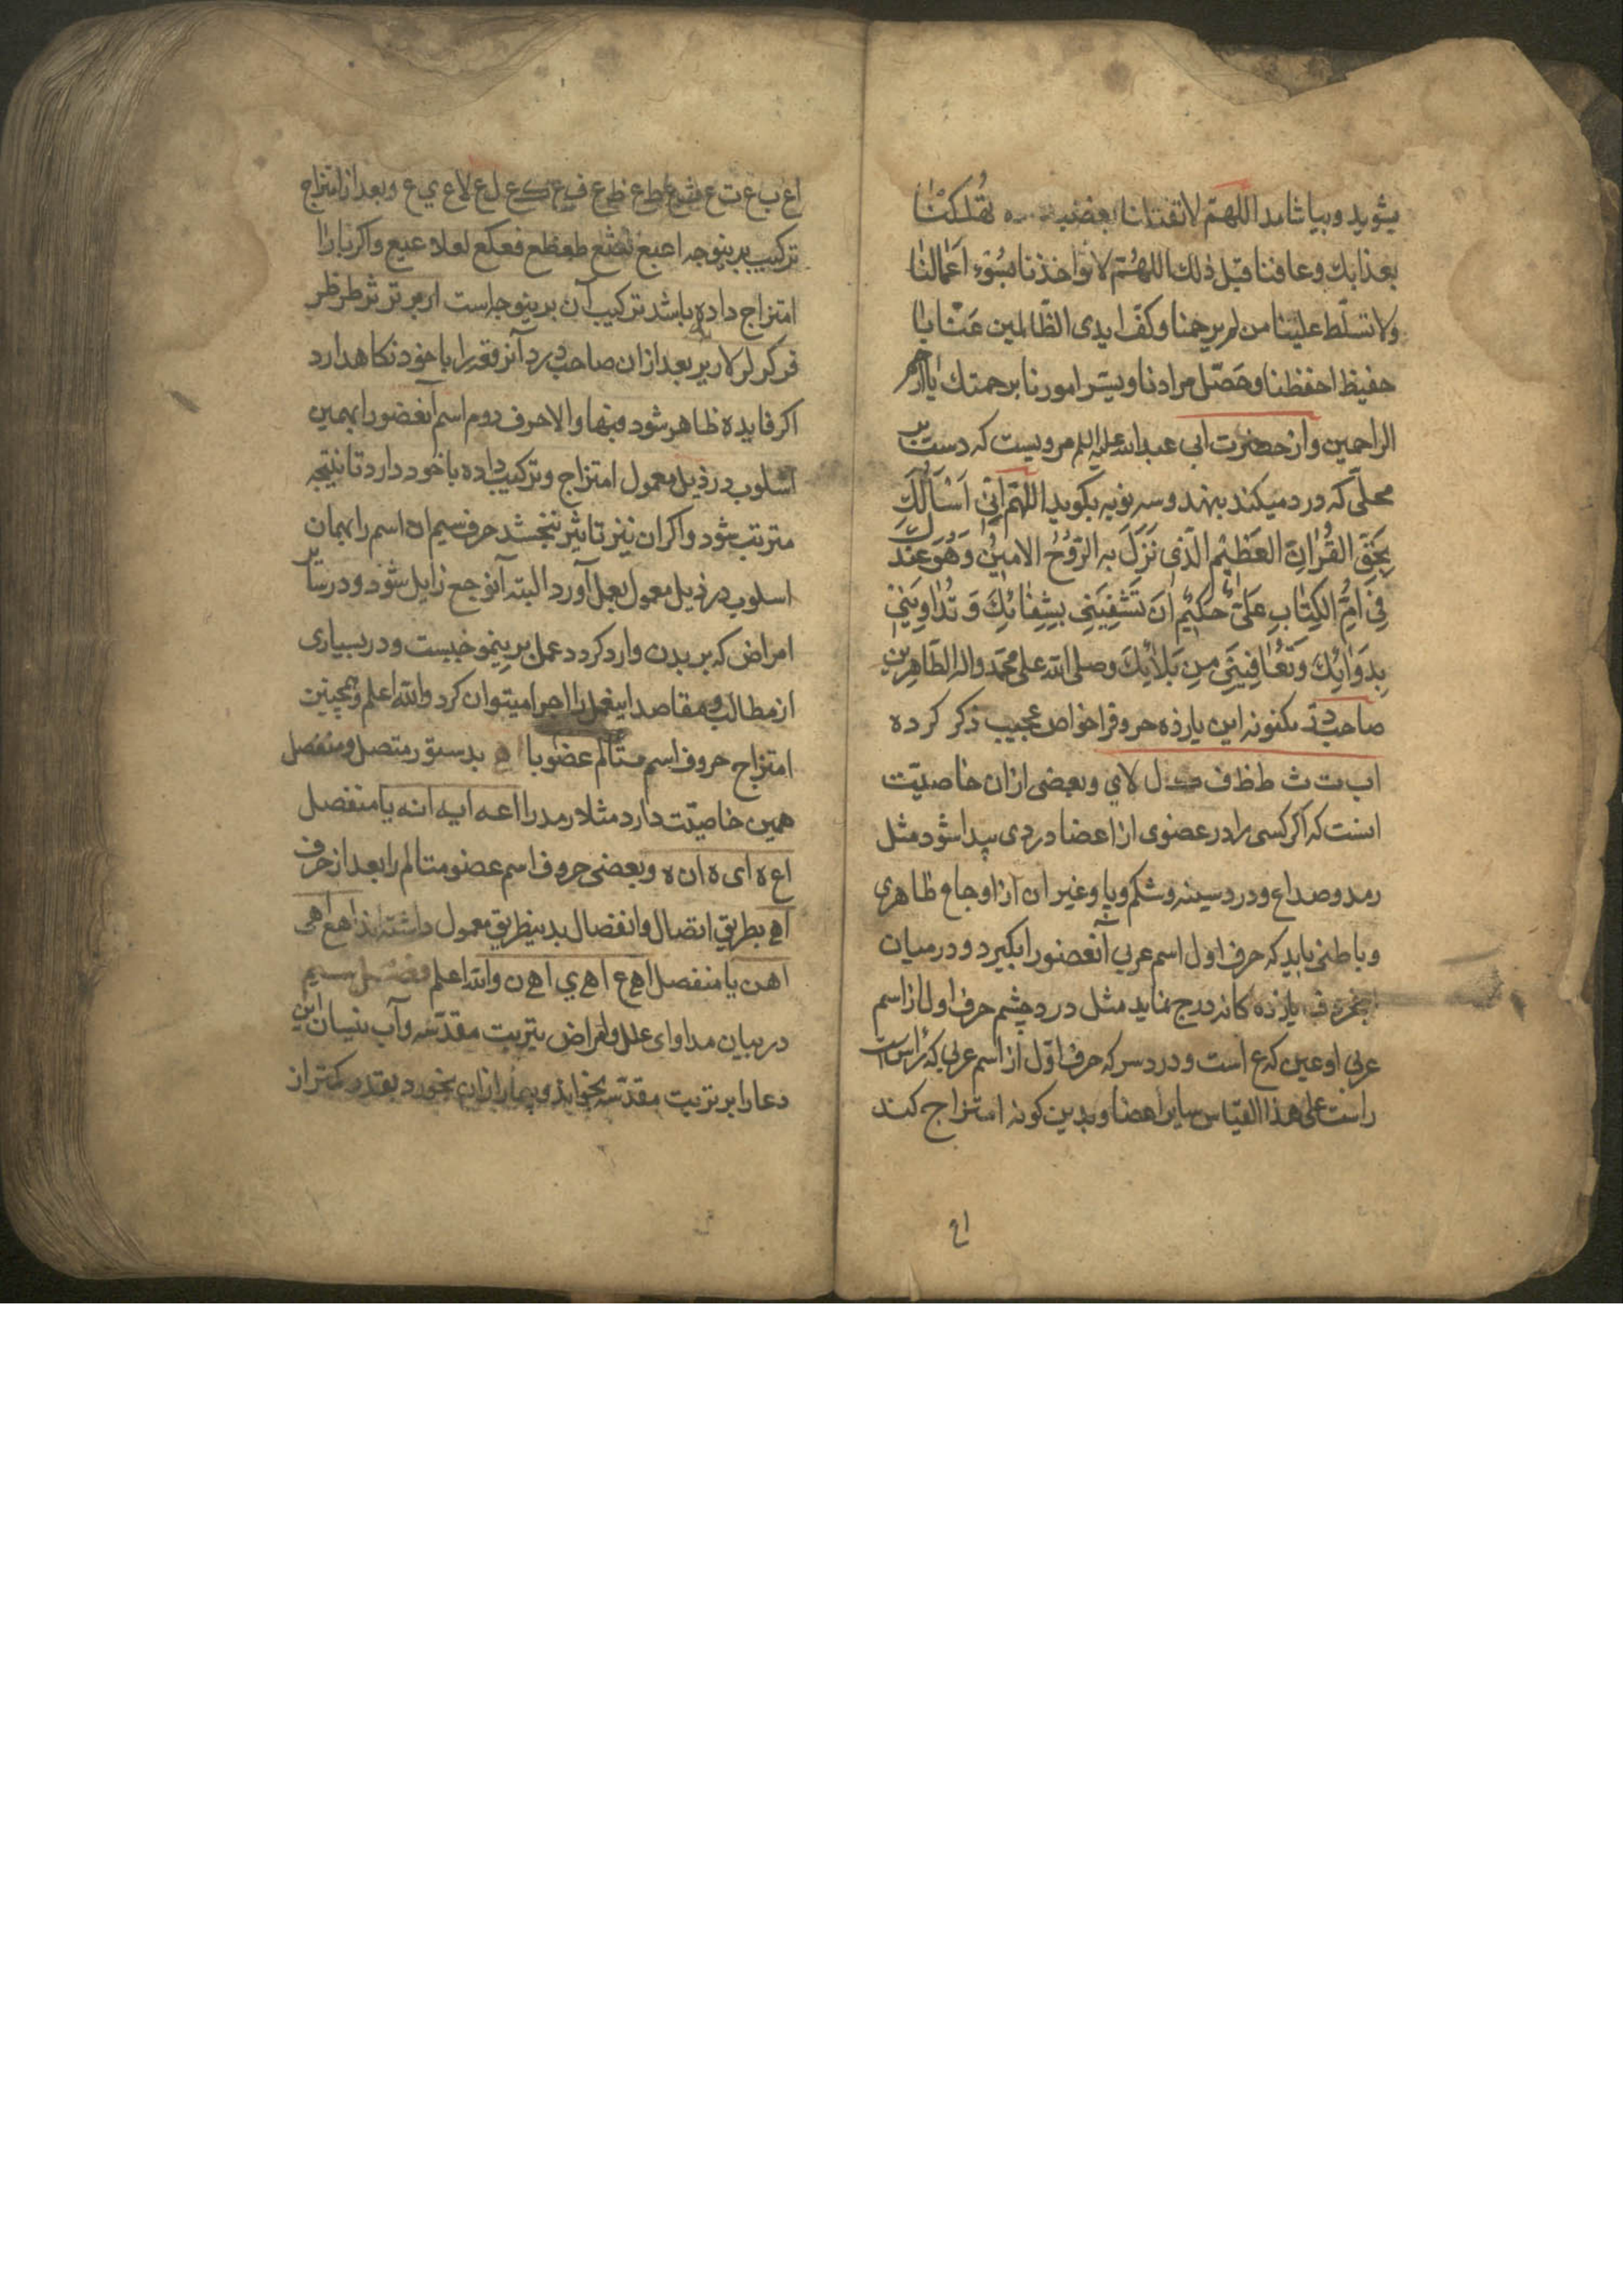 بشوید و بیاشامد اللهم لا تقتلنا بغضبك ولا تهلكنا
بعذابك وعافنا قبل ذلك اللهم لا تؤاخذنا بسوء اعمالنا
ولا تسلّط علینا من لم یرحمنا وکفّ ایدی الظالمین عنّا یا
حفیظ احفظنا وحصّل مرادنا ویسّر امورنا برحمتك یا ارحم
الراحمین و از حضرت ابی عبدالله علیه السلم مرویست که دست بر
محلّی که درد میکند بنهد و سه نوبه بکوید اللهم انّی اَسْأَلُكَ
بِحَقِّ القُرْاٰنِ العَظیمِ الّذی نَزَلَ بِهِ الرّوُحُ الامینُ وَهُوَ عِنْدَكَ
فِی اُمِّ الکِتٰابِ عَلیٌّ حَکیٌم اَنْ تَشْفِیَنی بِشِفٰائِكَ وَ تُداوِیَنی
بِدَوٰائِكَ وَ تُعٰافِیَنی مِن بَلاٰئِكَ وصلی الله علی محمد واله الطاهرین
صاحب مکنونه این یازده حروف را خواص عجیب ذکر کرده
ا ب ت ث ط ظ ف ک ل لا ی و بعضی ازان خاصیّت
انست که اکر کسی را در عضوی از اعضا دردی پیدا شود مثل
رمد و صداع و درد سینه و شکم و پا و غیر ان از اوجاع ظاهری
و باطنی باید که حرف اول اسم عربی آنعضو را بکیرد و در میان
یازده کانه درج نماید مثل درد چشم حرف اول از اسم
عربی او عین که ع است و درد سر که حرف اوّل از اسم عربی که رأس است
راست علی هذا القیاس سایر اعضا و بدین کونه امتزاج کند
اع
اع ب ع ت ع ث ع ط ع ظ ع ف ع ک ع ل ع لا ع ی ع و بعد از امتزاج
ترکیب برینوجه اعبع تعثع طعظع فعکع لعلا عیع و اکر با را
امتزاج داده باشد ترکیب آن برینوجه است ار بر تر ثر طر ظر
فر کر لر لار یر بعد ازان صاحب درد آنرقعه را با خود نکاهدارد
اکر فایده ظاهر شود فبها و الا حرف دوم اسم آنعضو را بهمین
اسلوب در ذیل معمول امتزاج و ترکیب داده با خود دارد تا نتیجه
مترتب شود و اکر ان نیز تاثیر نبخشد حرف سیم ان اسم را بهمان
اسلوب در ذیل معمول بعمل آورد البته آنوجع زایل شود و در سایر
امراض که بر بدن وارد کردد عمل برینموجبست و در بسیاری
از مطالب و مقاصد اینعمل را اجرا میتوان کرد والله اعلم و همچنین
امتزاج حروف اسم متألم عضو با اه بدستور متصل و منفصل
همین خاصیّت دارد مثلا رمد را اعه ایه انه یا منفصل
اع ه ای ه ان ه و بعضی حروف اسم عضو متالم را بعد از حرف
اه بطریق اتصال و انفصال بدینطریق معمول داشته‌اند اهع اهی
اهن یا منفصل اه ع اه ی اه ن والله اعلم فصل سیم
در بیان مداوای علل و امراض بتربت مقدّسه و آب نیسان این
دعا را بر تربت مقدّسه بخواند و بیمار ازان بخورد بقدر کمتر از